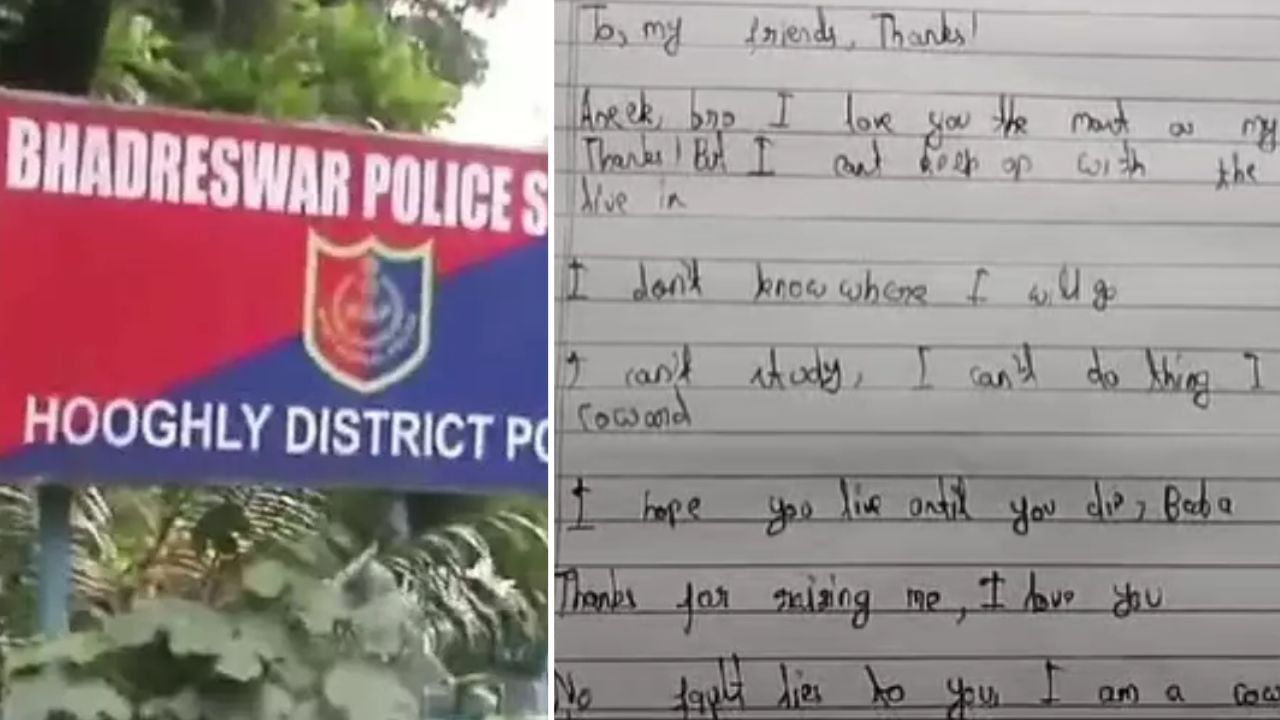 BHADRESWAR POLICE S
HOOGHLY DISTRICT PO
To, my friends, Thanks!
Aneek, bro I love you the most as my
Thanks! But I cant keep up with the
live in
I don't know where I will go
I can't study, I can't do thing I
coward
I hope you live until you die, Baba
Thanks for raising me, I love you
No fault lies to you, I am a cow